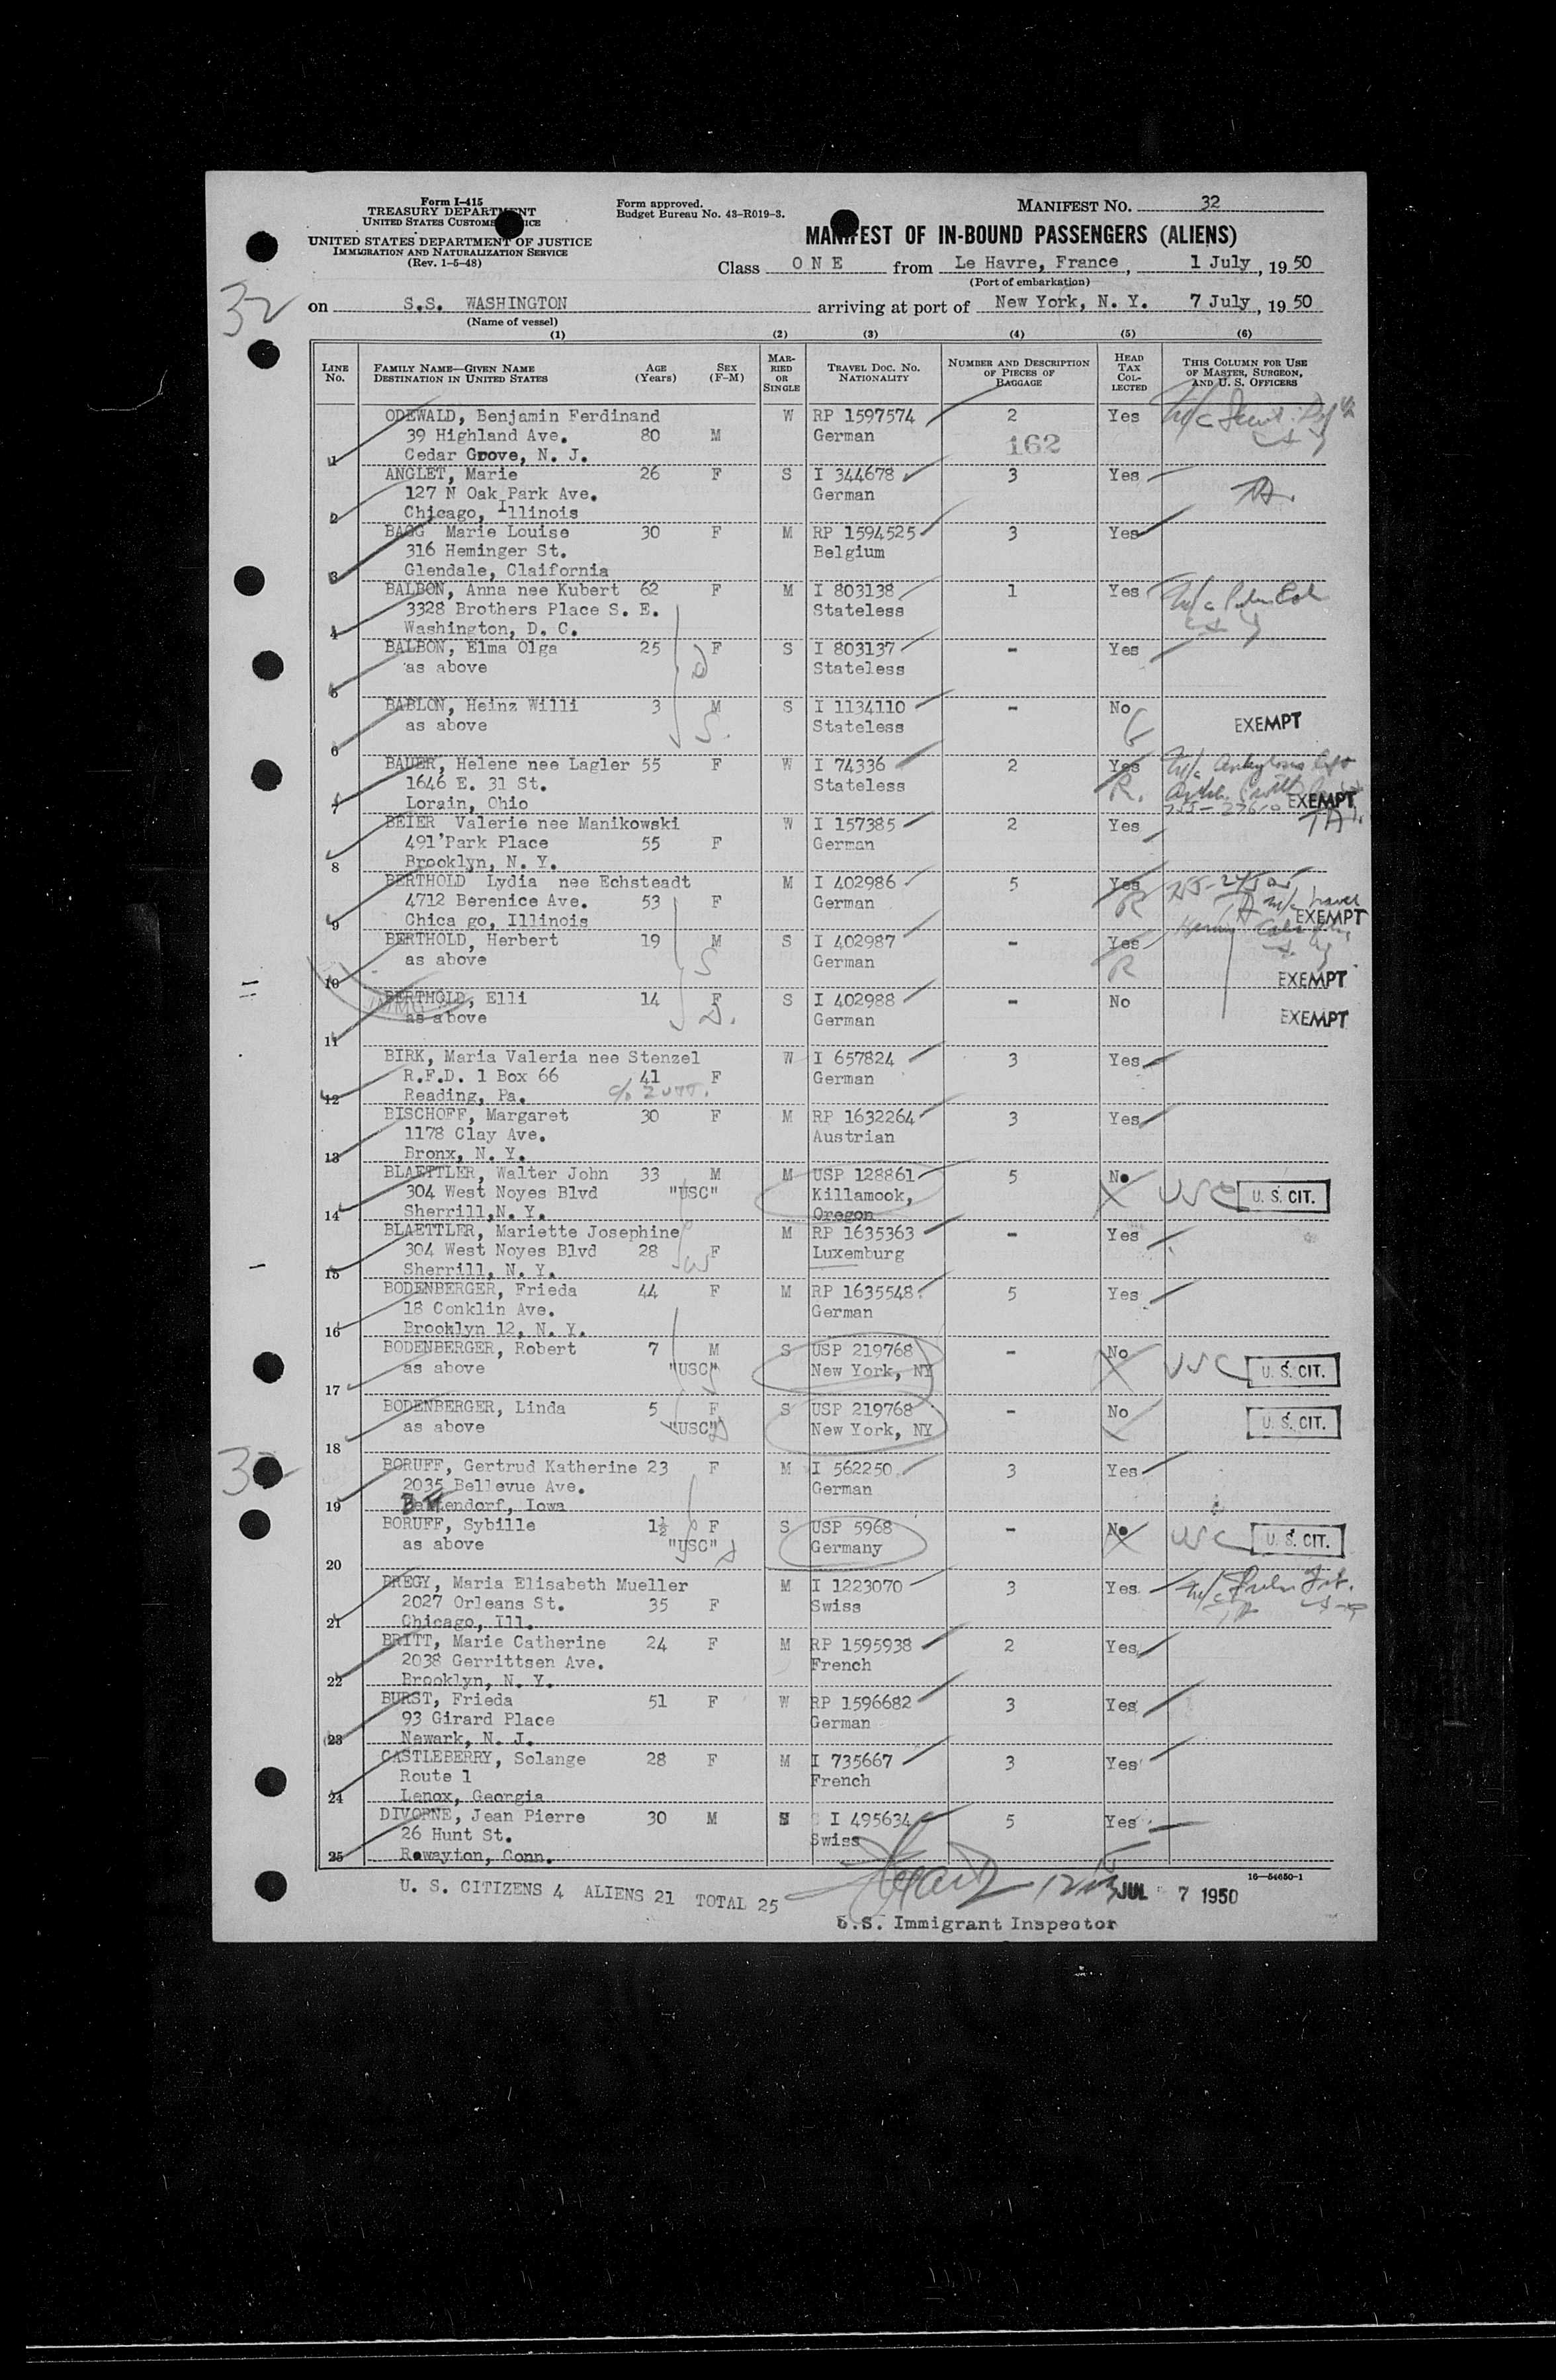 Form I-415
TREASURY DEPARTMENT
UNITED STATES CUSTOMS
UNITED STATES DEPARTMENT OF JUSTICE
IMMIGRATION AND NATURALIZATION SERVICE
(Rev. 1-5-48)
Form approved.
Budget Bureau No. 43-R019-3.
MANIFEST NO. 32
MANIFEST OF IN-BOUND PASSENGERS (ALIENS)
Class O N E from Le Havre, France, 1 July, 1950
(Port of embarkation)
32
on S.S. WASHINGTON arriving at port of New York, N. Y. 7 July, 1950
(Name of vessel)
(1) (2) (3) (4) (5) (6)
LINE No. FAMILY NAME—GIVEN NAME DESTINATION IN UNITED STATES AGE (Years) SEX (F-M) MARRIED OR SINGLE TRAVEL DOC. NO. NATIONALITY NUMBER AND DESCRIPTION OF PIECES OF BAGGAGE HEAD TAX COLLECTED THIS COLUMN FOR USE OF MASTER, SURGEON, AND U. S. OFFICERS
ODEWALD, Benjamin Ferdinand W RP 1597574 2 Yes
39 Highland Ave. 80 M German 162
1 Cedar Grove, N. J.
ANGLET, Marie 26 F S I 344678 3 Yes
127 N Oak Park Ave. German
2 Chicago, Illinois
BAGG Marie Louise 30 F M RP 1594525 3 Yes
316 Heminger St. Belgium
3 Glendale, Claifornia
BALBON, Anna nee Kubert 62 F M I 803138 1 Yes
3328 Brothers Place S. E. Stateless
4 Washington, D. C.
BALBON, Elma Olga 25 F S I 803137 - Yes
as above D Stateless
5
BABLON, Heinz Willi 3 M S I 1134110 - No
as above S. Stateless EXEMPT
6
BAUER, Helene nee Lagler 55 F W I 74336 2 Yes
1646 E. 31 St. Stateless R.
7 Lorain, Ohio EXEMPT
BEIER Valerie nee Manikowski W I 157385 2 Yes
491'Park Place 55 F German
8 Brooklyn, N. Y.
BERTHOLD Lydia nee Echsteadt M I 402986 5 Yes
4712 Berenice Ave. 53 F German R
9 Chica go, Illinois EXEMPT
BERTHOLD, Herbert 19 M S I 402987 - Yes
as above S German R
10 EXEMPT
BERTHOLD, Elli 14 F S I 402988 - No
as above D. German EXEMPT
11
BIRK, Maria Valeria nee Stenzel W I 657824 3 Yes
R.F.D. 1 Box 66 41 F German
12 Reading, Pa.
BISCHOFF, Margaret 30 F M RP 1632264 3 Yes
1178 Clay Ave. Austrian
13 Bronx, N. Y.
BLAETTLER, Walter John 33 M M USP 128861 5 No
304 West Noyes Blvd "USC" Killamook, USC U. S. CIT.
14 Sherrill,N. Y. Oregon
BLAETTLER, Mariette Josephine M RP 1635363 - Yes
304 West Noyes Blvd 28 F Luxemburg
15 Sherrill, N. Y. W
BODENBERGER, Frieda 44 F M RP 1635548 5 Yes
18 Conklin Ave. German
16 Brooklyn 12, N. Y.
BODENBERGER, Robert 7 M S USP 219768 - No
as above "USC" New York, NY USC U. S. CIT.
17
BODENBERGER, Linda 5 F S USP 219768 - No
as above "USC" New York, NY U. S. CIT.
18
BORUFF, Gertrud Katherine 23 F M I 562250 3 Yes
2035 Bellevue Ave. German
19 Bettendorf, Iowa
BORUFF, Sybille 1½ F S USP 5968 - No
as above "USC" Germany USC U. S. CIT.
20
BREGY, Maria Elisabeth Mueller M I 1223070 3 Yes
2027 Orleans St. 35 F Swiss
21 Chicago, Ill.
BRITT, Marie Catherine 24 F M RP 1595938 2 Yes
2038 Gerrittsen Ave. French
22 Brooklyn, N. Y.
BURST, Frieda 51 F W RP 1596682 3 Yes
93 Girard Place German
23 Newark, N. J.
CASTLEBERRY, Solange 28 F M I 735667 3 Yes
Route 1 French
24 Lenox, Georgia
DIVORNE, Jean Pierre 30 M S I 495634 5 Yes
26 Hunt St. Swiss
25 Rowayton, Conn.
16—54650-1
U. S. CITIZENS 4 ALIENS 21 TOTAL 25 JUL 7 1950
U.S. Immigrant Inspector